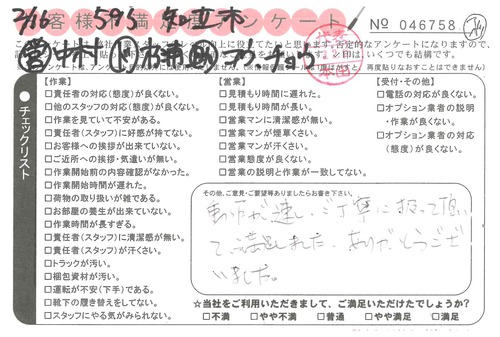 2/16 5915 知立市
お客様満足アンケート
№ 046758
チェックリスト
【作業】
□責任者の対応(態度)が良くない。
□他のスタッフの対応(態度)が良くない。
□作業を見ていて不安がある。
□責任者(スタッフ)に好感が持てない。
□お客様への挨拶が出来ていない。
□ご近所への挨拶・気遣いが無い。
□作業開始前の内容確認がなかった。
□作業開始時間が遅れた。
□荷物の取り扱いが雑である。
□お部屋の養生が出来ていない。
□作業時間が長すぎる。
□責任者(スタッフ)に清潔感が無い。
□責任者(スタッフ)が汗くさい。
□トラックが汚い。
□梱包資材が汚い。
□運転が不安(下手)である。
□靴下の履き替えをしてない。
□スタッフにやる気がみられない。
【営業】
□見積もり時間に遅れた。
□見積もり時間が長い。
□営業マンに清潔感が無い。
□営業マンが煙草くさい。
□営業マンが汗くさい。
□営業態度が良くない。
□営業の説明と作業が一致してない。
【受付・その他】
□電話の対応が良くない。
□オプション業者の説明
・作業が良くない。
□オプション業者の対応
(態度)が良くない。
その他、ご意見・ご要望等ありましたらお書き下さい。
動作が速し、ご丁寧に扱って頂い
て、満足しました。ありがとうござ
いました。
☆当社をご利用いただきまして、ご満足いただけたでしょうか?
□不満 □やや不満 □普通 □やや満足 □満足